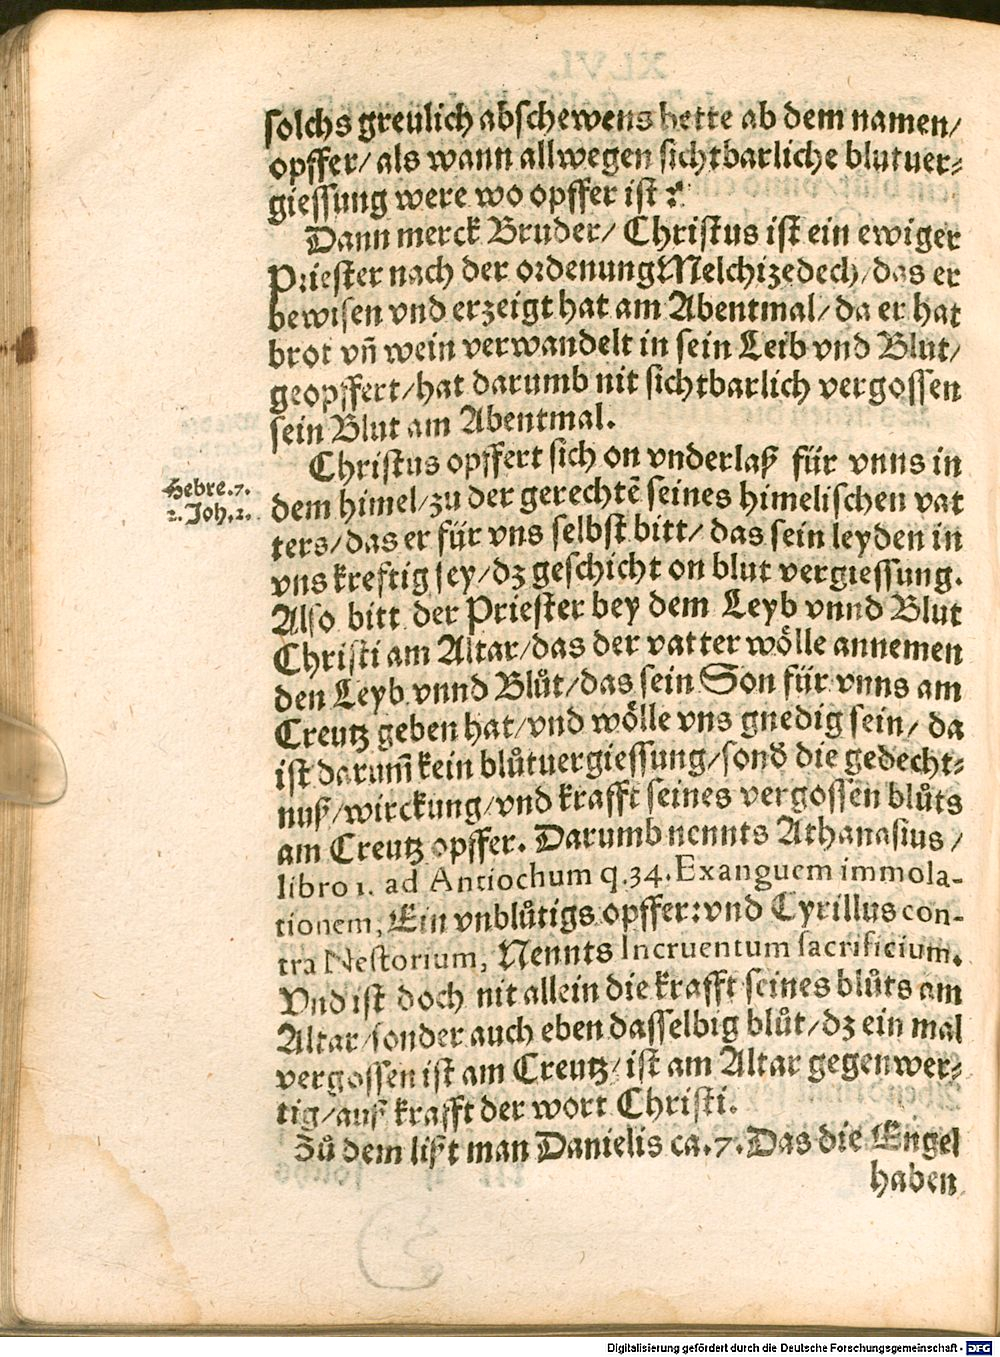 solchs greulich abschewens hette ab dem namen/
opffer/ als wann allwegen sichtbarliche blutuer⸗
giessung were wo opffer ist?
Dann merck Bruder/ Christus ist ein ewiger
Priester nach der ordenung Melchizedech/ das er
bewisen vnd erzeigt hat am Abentmal/ da er hat
brot vñ wein verwandelt in sein Leib vnd Blut/
geopffert/ hat darumb nit sichtbarlich vergossen
sein Blut am Abentmal.
Christus opffert sich on vnderlaß für vnns in
Hebre.7.
2.Joh.2.
dem himel/ zu der gerechtẽ seines himelischen vat
ters/ das er für vns selbst bitt/ das sein leyden in
vns kreftig sey/ dz geschicht on blut vergiessung.
Also bitt der Priester bey dem Leyb vnnd Blut
Christi am Altar/ das der vatter wölle annemen
den Leyb vnnd Blůt/ das sein Son für vnns am
Creutz geben hat/ vnd wölle vns gnedig sein/ da
ist darum̃ kein blůtuergiessung/ sond̕ die gedecht⸗
nuß/ wirckung/ vnd krafft seines vergossen blůts
am Creutz opffer. Darumb nennts Athanasius/
libro 1. ad Antiochum q.34. Exanguem immola-
tionem, Ein vnblůtigs opffer: vnd Cyrillus con-
tra Nestorium, Nennts Incruentum sacrificium.
Vnd ist doch nit allein die krafft seines blůts am
Altar/ sonder auch eben dasselbig blůt/ dz ein mal
vergossen ist am Creutz/ ist am Altar gegenwer⸗
tig/ auß krafft der wort Christi.
Zů dem lißt man Danielis ca.7. Das die Engel
haben
Digitalisierung gefördert durch die Deutsche Forschungsgemeinschaft - DFG